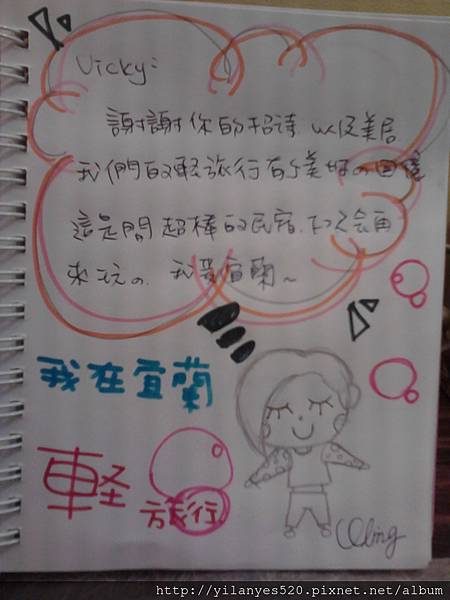 Vicky:
謝謝你的招待. 以後美居
我們的輕旅行有了美好の回憶
這是間超棒的民宿. 下次會再
來玩の. 我愛宜蘭~
我在宜蘭
輕
旅行
Ming
http://yilanyes520.pixnet.net/album